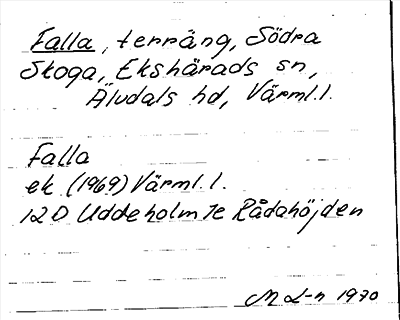 Falla, terräng, Södra
Skoga, Ekshärads sn,
Äludals hd, Värml. l.
Falla
ek. (1969) Värml. l.
12D Uddeholm 7e Rådahöjden
M L-n 1970